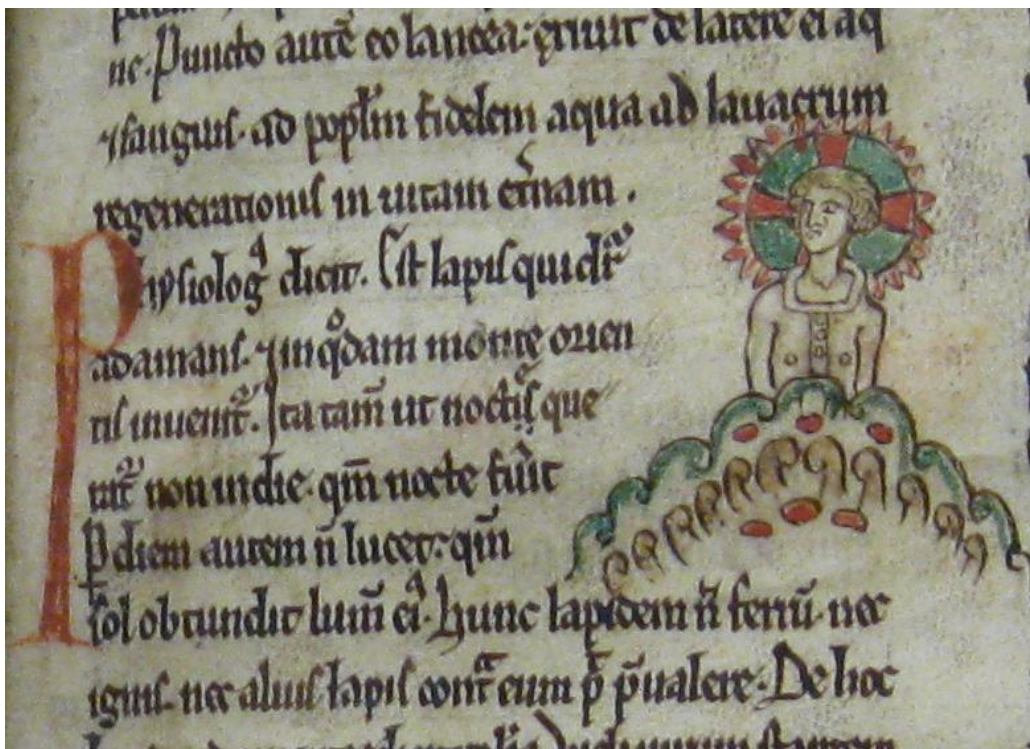 ne. Puncto autē eo lancea. exiuit de latere ei aq
⁊ sanguis. ad popłm fidelem aqua ab lauacrum
regenerationis in uitam etn̄am.
Physiolog᷒ dicit. Est lapis quidr̄
adamans. ⁊ in qͦdam monte orien
tis inuenit̄. Ita tam̄ ut noctis que
rat̄ non in die. qm̄ nocte
ꝑ diem autem n̄ lucet. qm̄
sol obtundit lum̄ ei᷒. hunc lapidem n̄ ferrū. nec
ignis. nec alius lapis cont̄ eum p̄ p̄ualere. De hoc